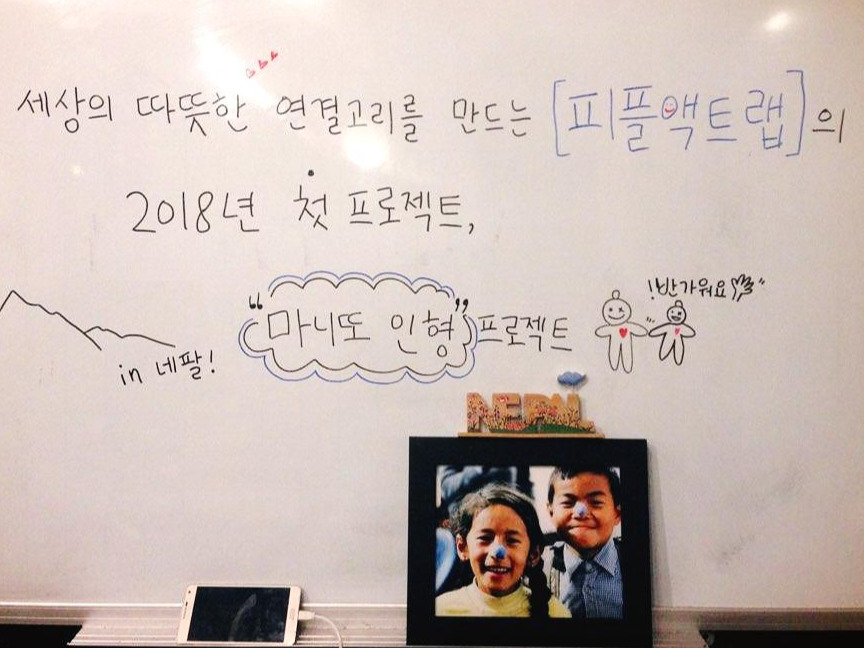 세상의 따뜻한 연결고리를 만드는 [피플액트랩]의
2018년 첫 프로젝트,
!반가워요
"마니또 인형" 프로젝트
in 네팔!
NEPAL